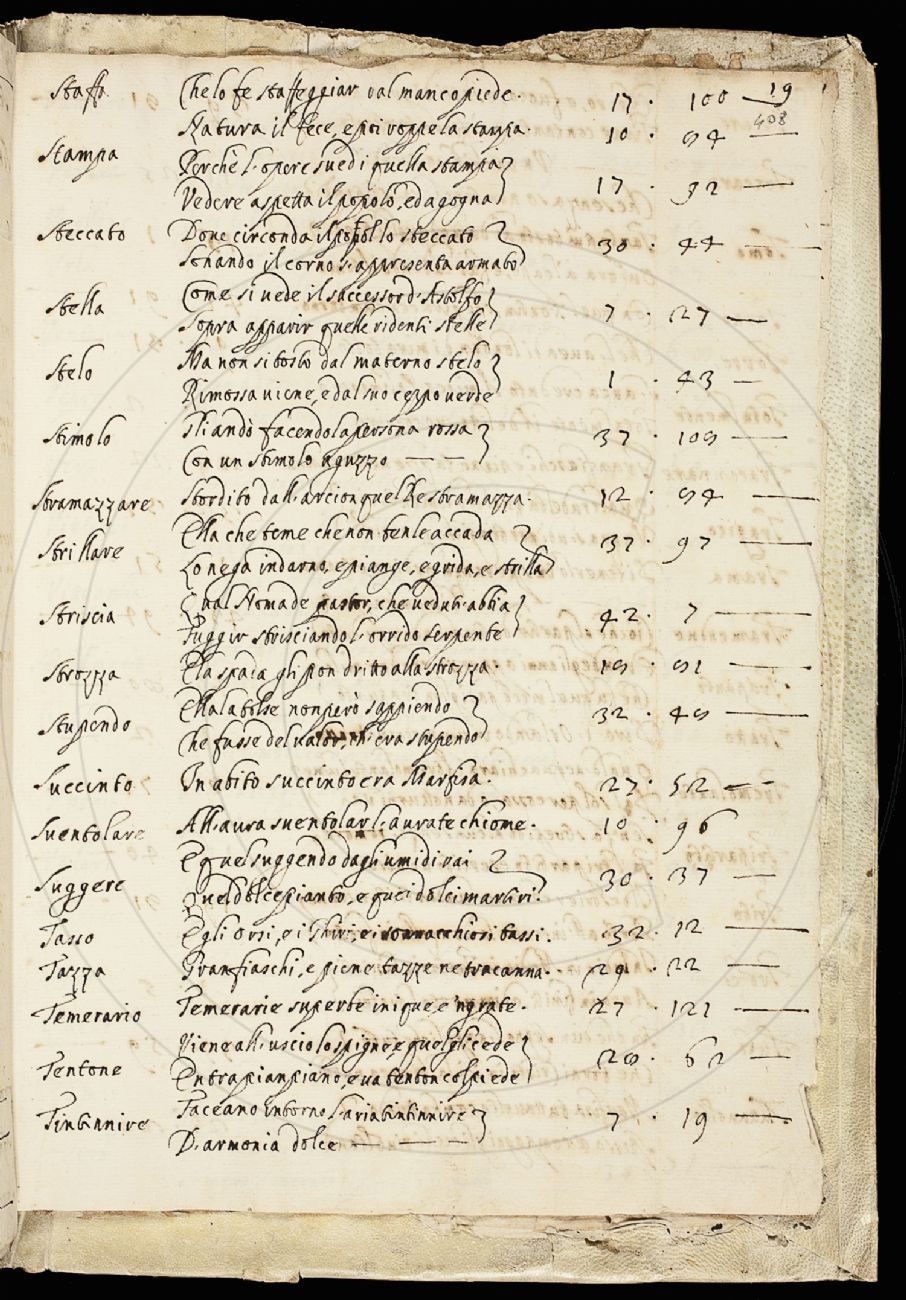 19
Staffa Che lo fe staffeggiar dal manco piede. 17. 100 —
408
Natura il fece, e poi roppe la stampa. 10. 84 —
Stampa Perchè l'opere sue di quella stampa
Vedere aspetta il popolo, ed agogna 17. 92 —
Steccato Dove circonda il popol lo steccato 30. 44 —
Sonando il corno s'appresenta armato
Stella Come si vede il successor d'Astolfo
Sopra apparir quelle ridenti stelle 7. 27 —
Stelo Ma non si tosto dal materno stelo
Rimossa viene, e dal suo ceppo verde 1. 43 —
Stimolo Gli andò facendo la persona rossa 37. 108 —
Con un stimolo aguzzo — —
Stramazzare Stordito dall'arcion quel Re stramazza. 12. 84 —
Strillare Ella che teme che non ben le accada 37. 97 —
Lo nega indarno, e piange, e grida, e strilla
Striscia Qual Nomade pastor, che vedut'abbia
Fuggir strisciando l'orrido serpente 42. 7 —
Strozza E la spada gli pon dritto alla strozza. 18. 81 —
Stupendo Ella la tolse non però sappiendo
Che fusse del valor, ch'era stupendo 32. 48 —
Succinto In abito succinto era Marfisa. 27. 52 — —
Sventolare All'aura sventolar l'aurate chiome. 10. 96
E quel suggendo dagli umidi rai
Suggere Quel dolce pianto, e quei dolci martiri. 30. 37 —
Tasso E gli Orsi, e i Ghiri, e i sonnacchiosi tassi. 32. 12 —
Tazza Gran fiaschi, e piene tazze ne tracanna. 29. 22 —
Temerario Temerarie superbe inique, e 'ngrate. 27. 121 —
Viene all'uscio lo spigne, e quel gli cede
Tentone Entra pian piano, e va tenton col piede 28. 62 —
Tintinnire Faceano intorno l'aria tintinnire 7. 19 —
D'armonia dolce — — —